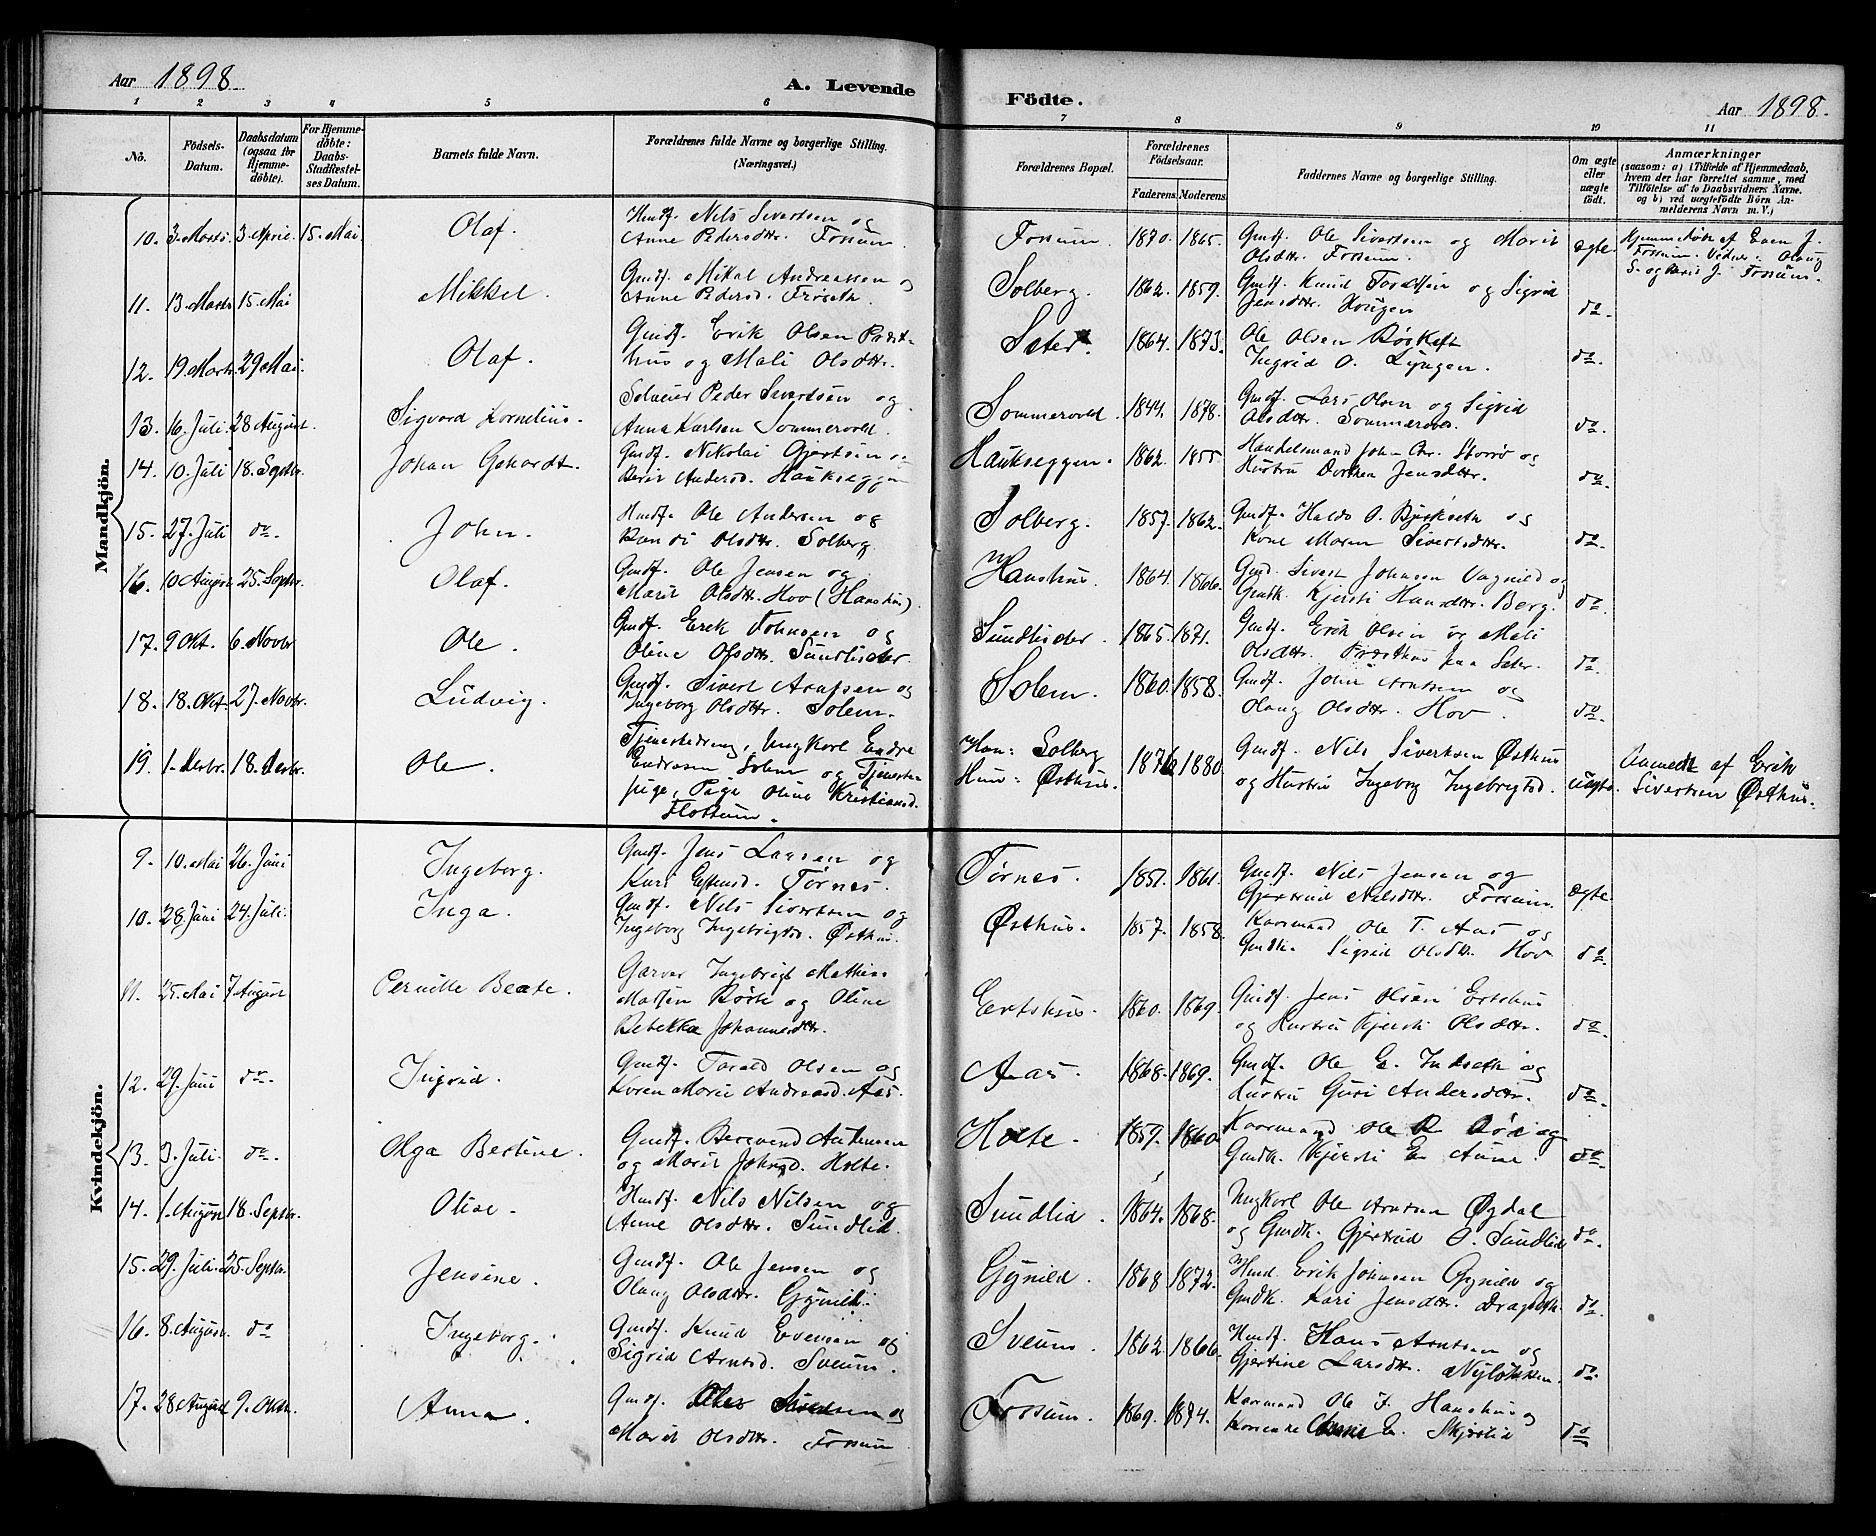 Aar 1898. A. Levende Födte. Aar 1898.
1 2 3 4 5 6 7 8 9 10 11
No. Födsels-Datum. Daabsdatum (ogsaa for Hjemme-döbte). For Hjemme-döbte: Daabs-Stadfæstel-ses Datum. Barnets fulde Navn. Forældrenes fulde Navne og borgerlige Stilling. (Næringsvei.) Forældrenes Bopæl. Forældrenes Födselsaar. Faderens. Moderens. Faddernes Navne og borgerlige Stilling. Om ægte eller uægte födt. Anmærkninger (saasom: a) i Tilfælde af Hjemmedaab, hvem der har forrettet samme, med Tilföielse af to Daabsvidners Navne. og b) ved uægtefödte Börn An-melderens Navn m. V.)
Mandkjön.
10. 3. Marts. 3. April. 15. Mai Olaf. Husf. Nils Sivertsen og
Anne Pedersdtr. Fossum. Fossum. 1870. 1865. Gmdf. Ole Sivertsen og Marit
Olsdtr. Fossum. ægte. Hjemmedöbt af Even J.
Fossum. Vidner: Olaug
S. og J. Fossum.
11. 13. Marts 15. Mai Mikkel. Gmdf. Mikal Andreassen og
Anne Pedersd. Fröseth. Solberg. 1862. 1859. Gmdf. Knud og Sigrid
Jensdtr. Haugen do.
12. 19. Marts 29 Mai. Olaf. Gmdf. Erik Olsen Præst-
hus og Mali Olsdtr. Sæter. 1864. 1873. Ole Olsen
Ingrid O. Lyngen. do.
13. 16. Juli. 28 August. Sigvard Kornelius. Peder Sivertsen og
Anna Karlsen Sommervold. Sommervold. 1844. 1878. Gmdf. Lars Olsen og Sigrid
Olsdtr. Sommervold. do.
14. 10. Juli 18. Septbr. Johan Gehardt. Gmdf. Nikolai Gjertsen og
Berit Andersd. Haukseggen Haukseggen. 1862. 1855. Handelsmand John Chr. Storrö og
Hustru Dorthea Jensdtr. do.
15. 27. Juli do. John. Husf. Ole Andersen og
Randi Olsdtr. Solberg. Solberg. 1857. 1862. Gmdf. Haldo O. og
Kone Maren Sivertsdtr. do.
16. 10 August. 25. Septbr. Olaf. Gmdf. Ole Jensen og
Marit Olsdtr. Hov (Hanshus). Hanshus. 1864. 1866. Gmd. Sivert Johnsen Vagnild og
Gmdk. Kjersti Hansdtr. Berg. do.
17. 9 Okt. 6. Novbr Ole. Gmdf. Erik Johnsen og
Oline Olsdtr. Sundlisæter. Sundlisæter. 1865. 1871. Gmdf. Erik Olsen og Mali
Olsdtr. Præsthus paa Sæter. do
18. 18. Okt. 27. Novbr. Ludvig. Gmdf. Sivert Arntsen og
Ingeborg Olsdtr. Solem. Solem. 1860. 1858. Gmdf. John Arntsen og
Olaug Olsdtr. Hov. do.
19. 1. Decbr. 18. Decbr. Ole. Tjenestedreng, Ungkarl Endre
Endresen Solem og Tjeneste-
pige, Pige Oline Kristiansd.
Flottum. Han: Solberg
Hun: Østhus. 1876 1880. Gmdf. Nils Sivertsen Østhus
og Hustru Ingeborg Ingebrigtsd. uægte. Anmeldt af Erik
Sivertsen Østhus.
Kvindekjön.
9. 10. Mai 26. Juni Ingeborg. Gmdf. Jens Larsen og
Kari Estensd. Törnes. Törnes. 1851. 1861. Gmdf. Nils Jensen og
Gjertrud Nilsdtr. Fossum. ægte
10. 28. Juni 24. Juli. Inga. Gmdf. Nils Sivertsen og
Ingeborg Ingebrigtsd. Østhus. Østhus. 1857. 1858. Kaarmand Ole T. Aas og
Gmdk. Sigrid Olsdtr. Hov do.
11. 25. Mai 7. August Pernille Beate. Garver Ingebrigt Mathias
Madsen og Oline
Rebekka Johannesdtr. Estshus. 1860. 1869. Gmdf. Jens Olsen Estshus
og Hustru Kjersti Olsdtr. do.
12. 29. Juni do. Ingrid. Gmdf. Tarald Olsen og
Karen Marie Andreasd. Aas. Aas. 1868. 1869. Gmdf. Ole E. Indseth og
Hustru Guri Andersdtr. do.
13. 3. Juli. do. Olga Bertine. Gmdf. Bersvend Andersen
og Marit Johnsd. Holte. Holte. 1859. 1860. Kaarmand Ole og
Gmdk. Kjersti E. Aune. do.
14. 1. August 18. Septbr. Olise. Husf. Nils Nilsen og
Anne Olsdtr. Sundlid. Sundlid. 1864. 1868. Ungkarl Ole Arntsen Øydal
og Gmdk. Gjertrud O. Sundlid do.
15. 29. Juli. 25. Septbr. Jensine. Gmdf. Ole Jensen og
Olaug Olsdtr. Gynild. Gynild. 1868 1872. Husd. Erik Johnsen Gynild og
Gmdk. Kari Jensdtr. Dragseth. do.
16. 8. August. do Ingeborg. Gmdf. Knud Evensen og
Sigrid Arntsd. Sveum. Sveum. 1862. 1866. Husf. Hans Arntsen og
Gjertine Larsdtr. Nyløkken. do.
17. 28 August 9. Oktbr. Anna. Gmdf. og
Marit Olsdtr. Fossum Fossum. 1869. 1874. Kaarmand Ole J. Hanshus og
Kaarenke E. Skjerlid do